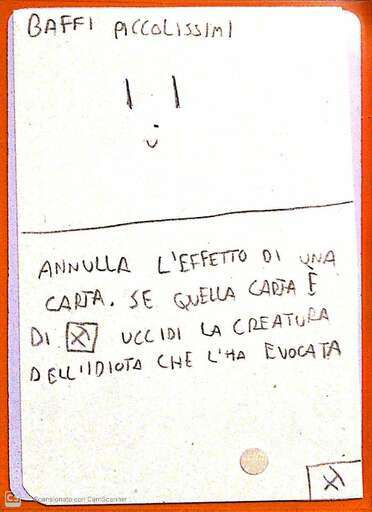 BAFFI PICCOLISSIMI
ANNULLA L'EFFETTO DI UNA
CARTA. SE QUELLA CARTA È
DI UCCIDI LA CREATURA
DELL'IDIOTA CHE L'HA EVOCATA
CS Scansionato con CamScanner